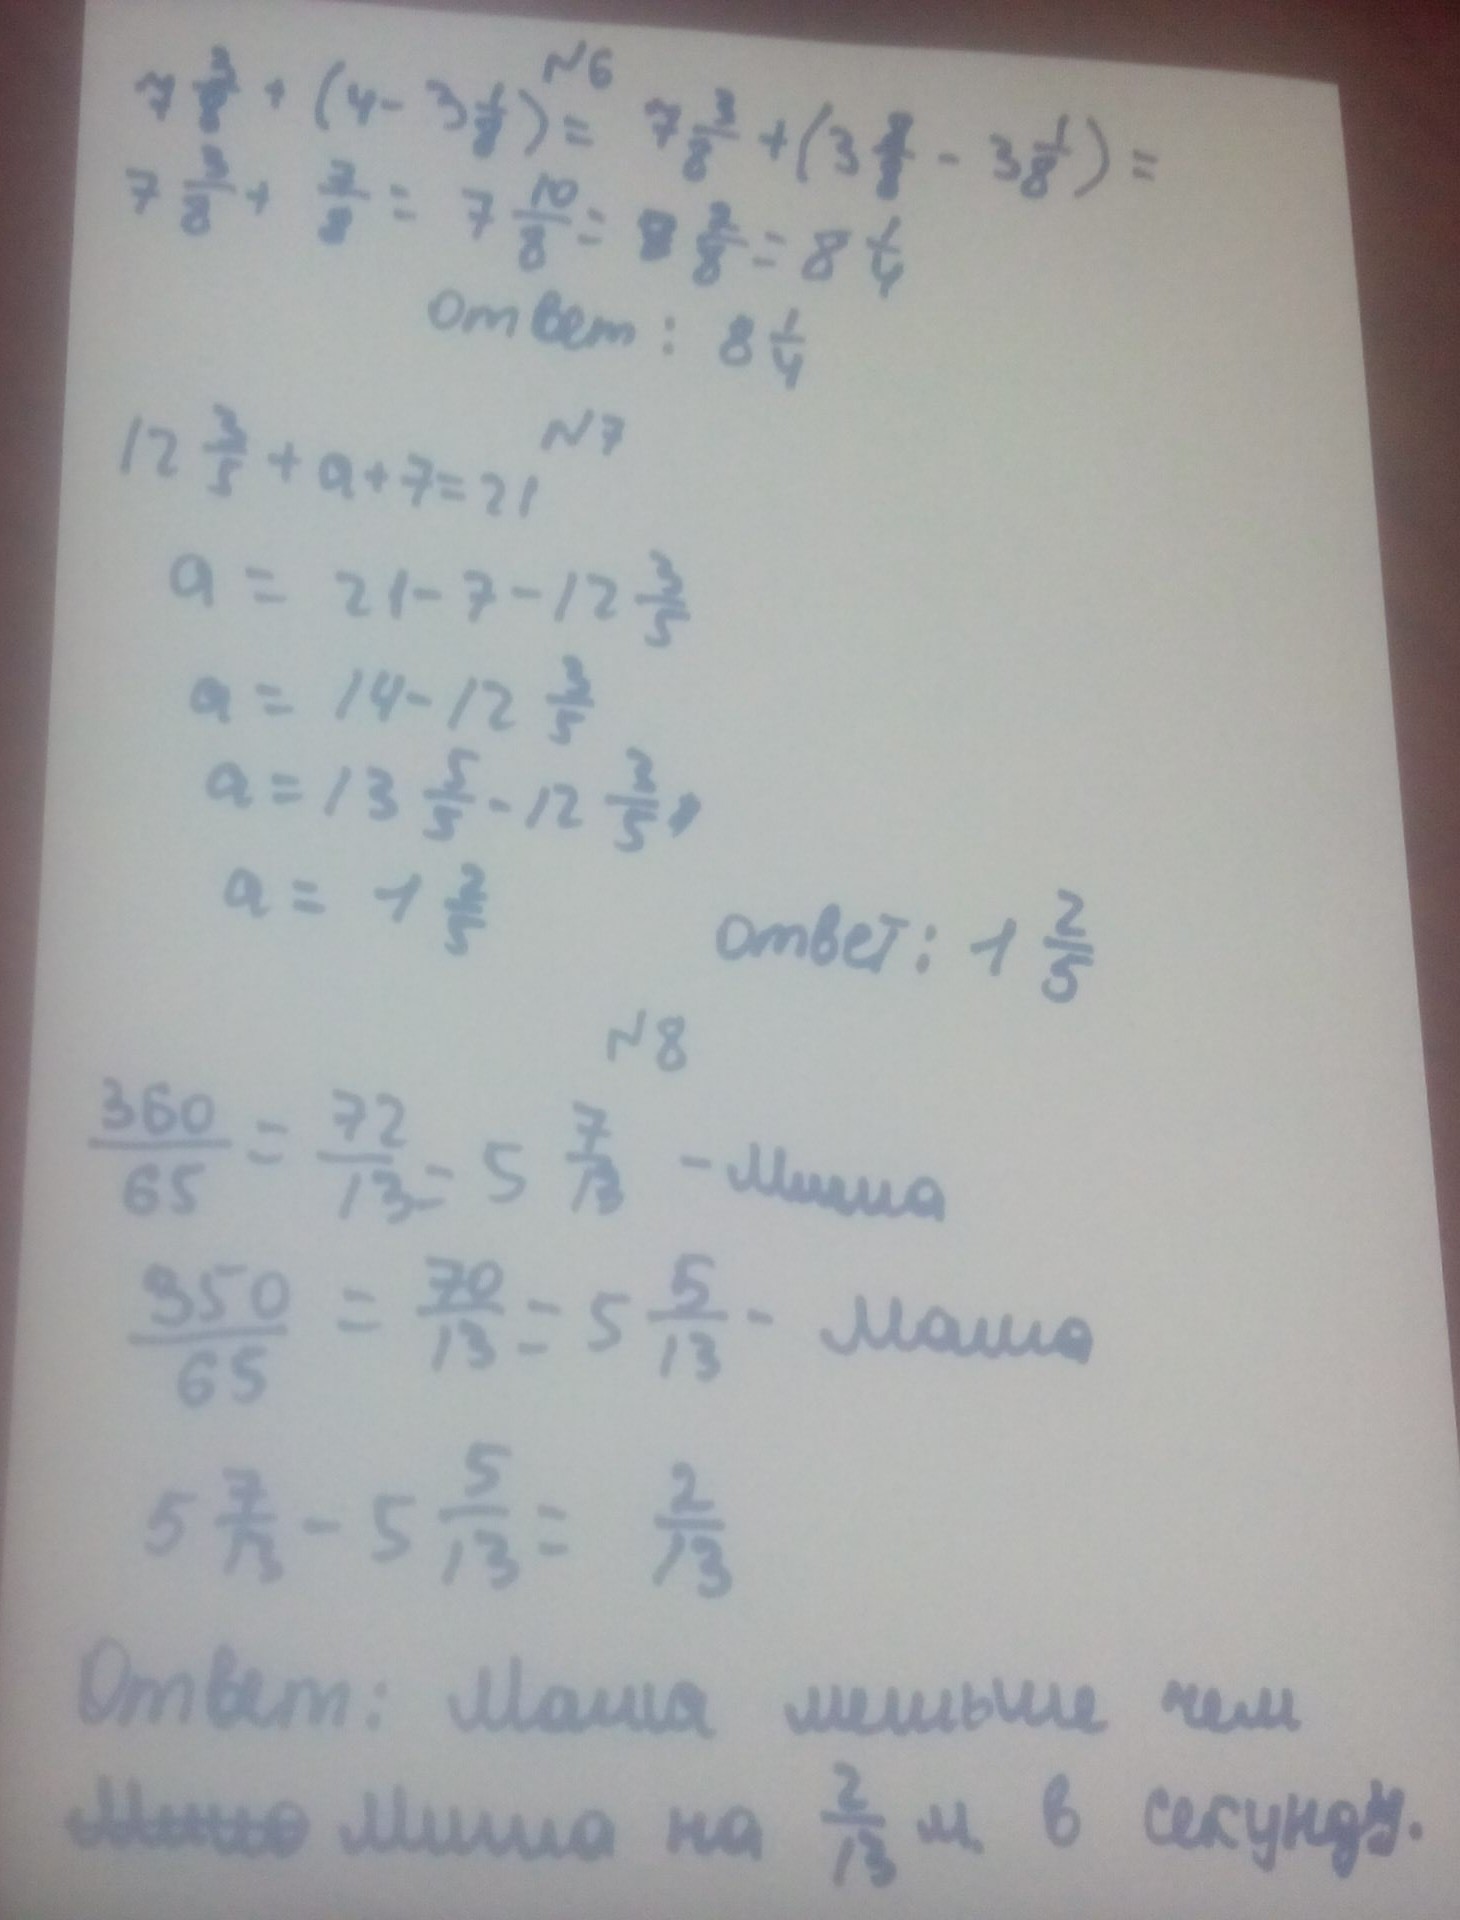 №6
7 3/8 + (4 - 3 1/8) = 7 3/8 + (3 8/8 - 3 1/8) =
7 3/8 + 7/8 = 7 10/8 = 8 2/8 = 8 1/4
Ответ: 8 1/4
№7
12 3/5 + a + 7 = 21
a = 21 - 7 - 12 3/5
a = 14 - 12 3/5
a = 13 5/5 - 12 3/5
a = 1 2/5
Ответ: 1 2/5
№8
360/65 = 72/13 = 5 7/13 - Миша
350/65 = 70/13 = 5 5/13 - Маша
5 7/13 - 5 5/13 = 2/13
Ответ: Маша меньше чем
Миша на 2/13 м в секунду.